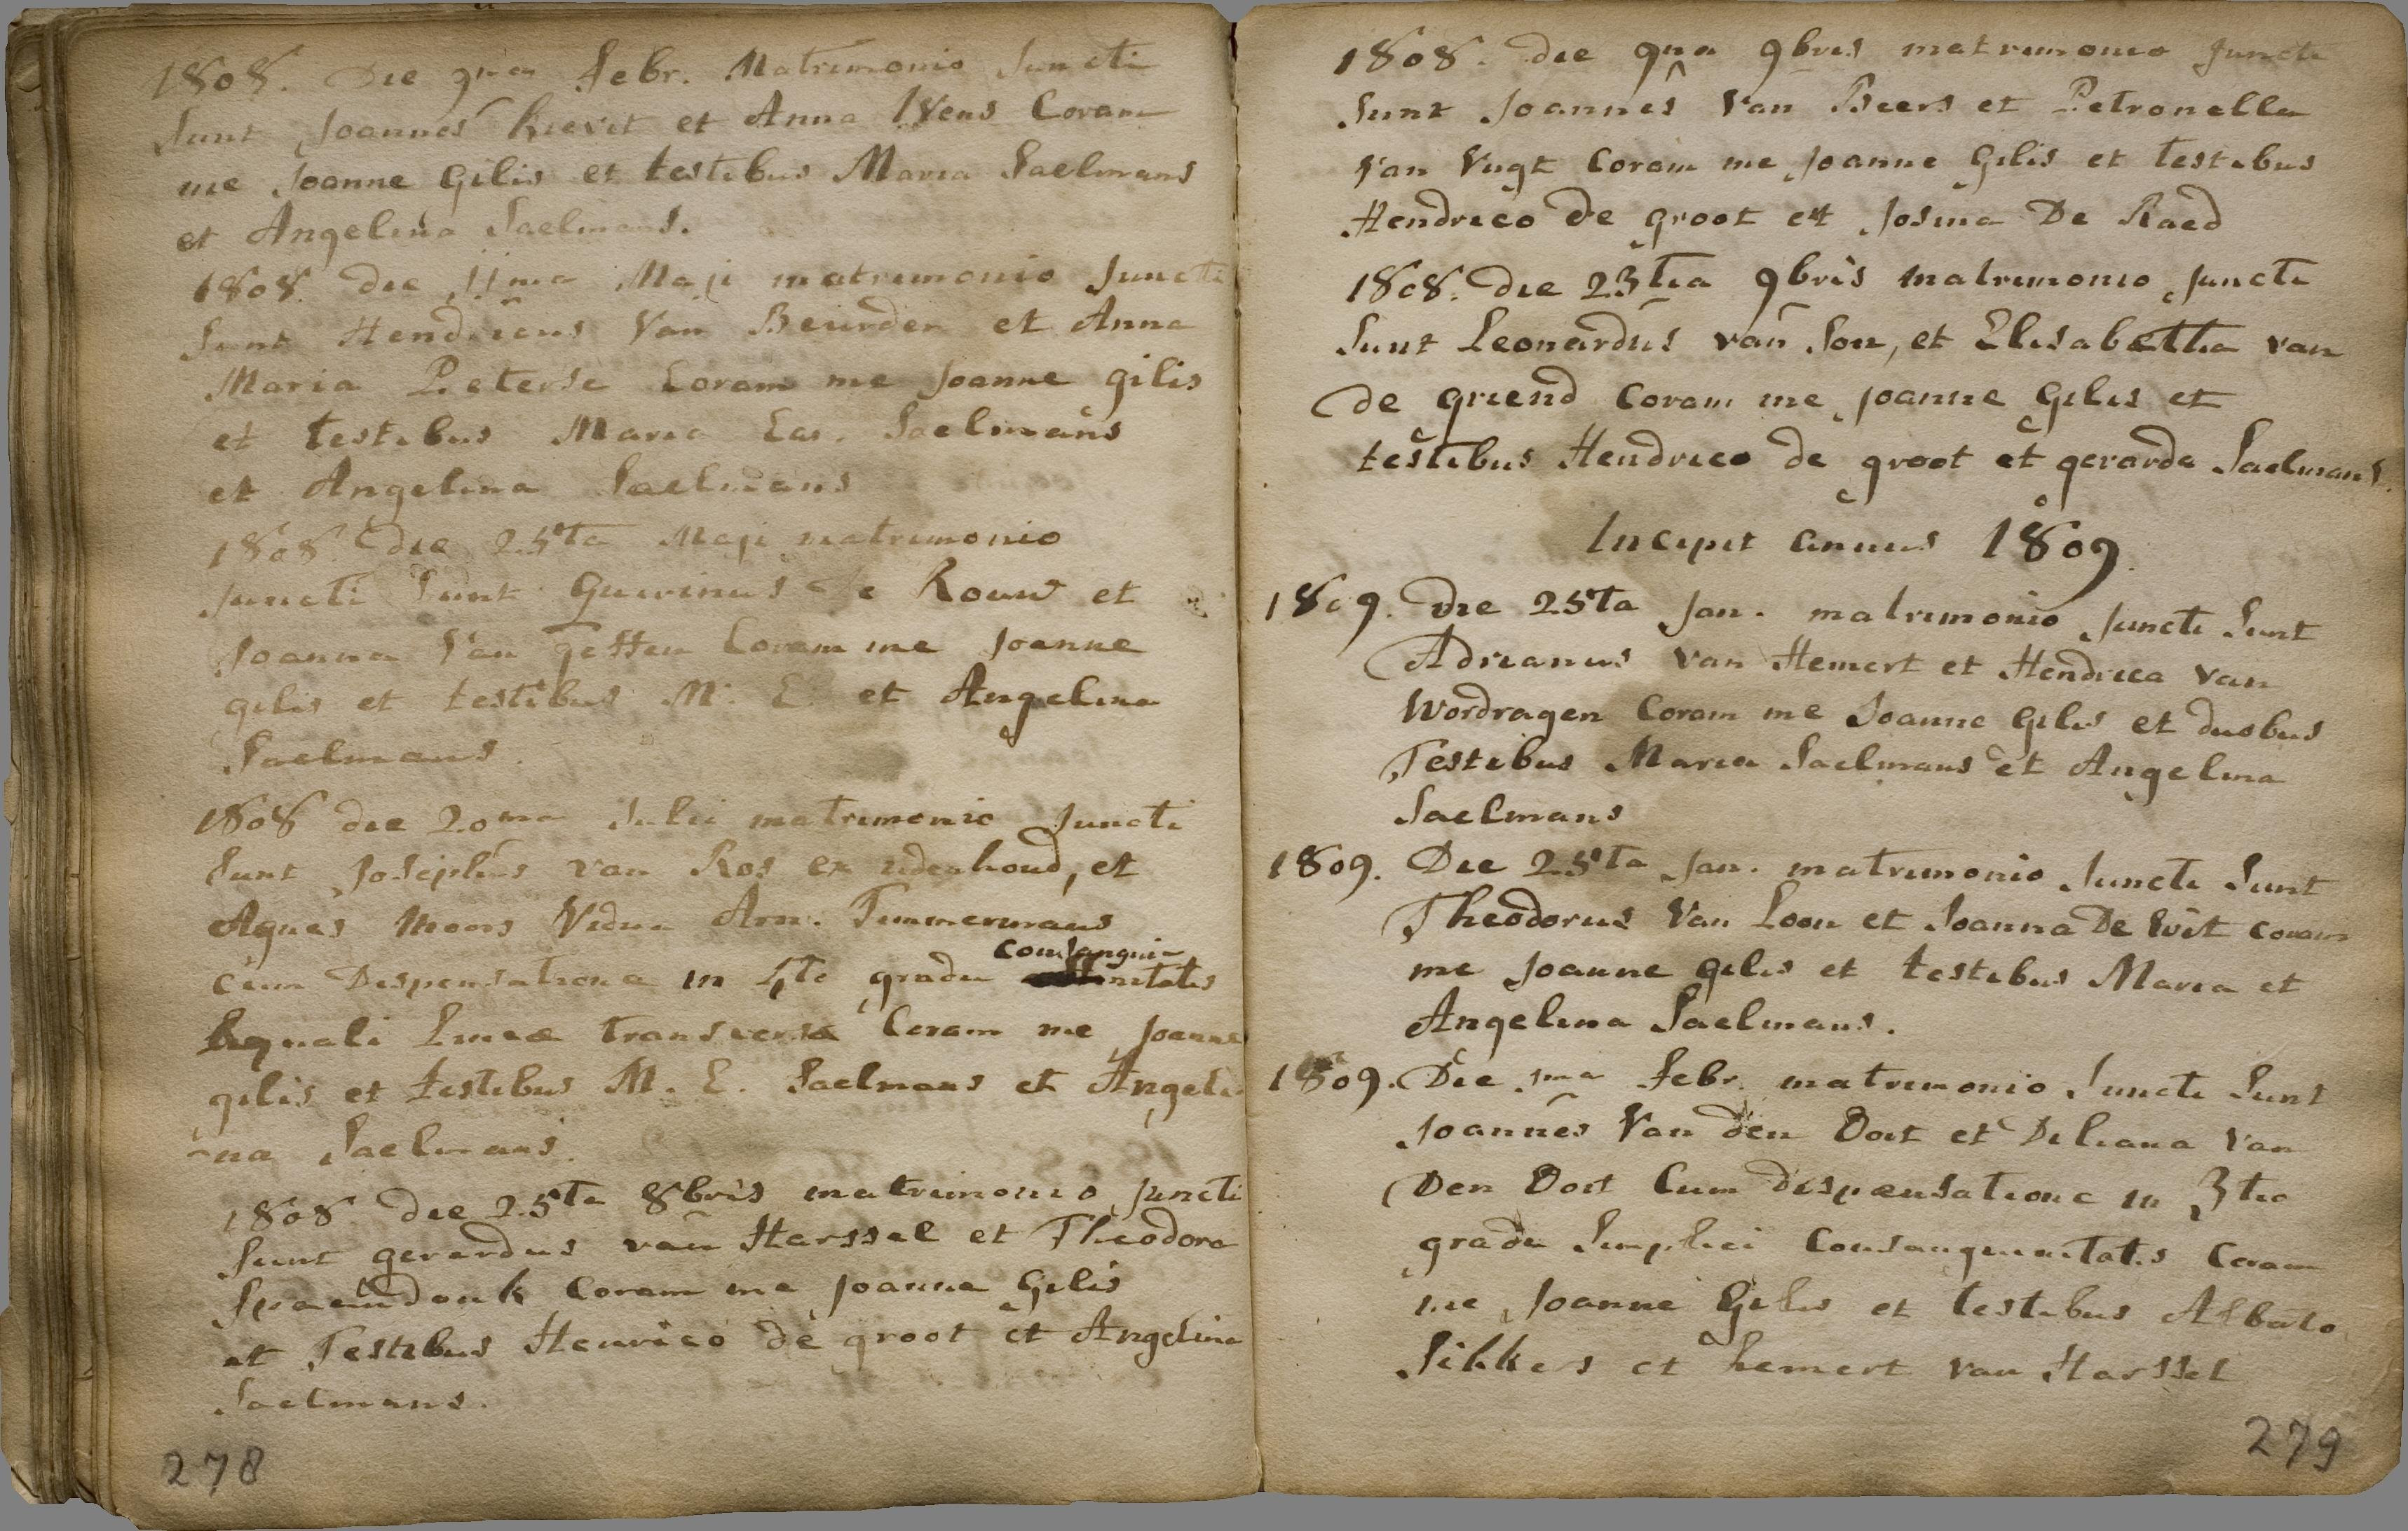 1808. Die 9na Febr. Matrimonio Juncti
Sunt Joannes Kievit et Anna IVens Coram
me Joanne Gilis et testibus Maria Saelmans
et Angelina Saelmans.
1808. die 11ma Maji matrimonio Juncti
Sunt Hendricus Van Beurden et Anna
Maria Peterse Coram me Joanne gilis
et testibus Maria Saelmans
et Angelina Saelmans
1808 die 25ta Maji matrimonio
Juncti Sunt Quirinus de Rouw et
Joanna Van Coram me Joanne
gilis et testibus M. E. et Angelina
Saelmans.
1808 die 20ma Julii matrimonio Juncti
Sunt Josephus van Ros ex udenhoud, et
Agnes Moors Vidua Arn. Timmermans
consangui-
cum Dispensatione in 4to gradu nitatis
Aequali Linea transversa Coram me Joanne
gilis et testibus M. E. Saelmans et Angeli
-na Saelmans.
1808 die 25ta 8bris matrimonio Juncti
Sunt gerardus van Harssel et Theodora
Spaendonk coram me Joanne Gilis
et Testibus Henrico de groot et Angelina
Saelmans.
278
1808. die 9na 9bris matrimonio Juncti
Sunt Joannes Van Beers et Petronella
Van Vugt Coram me Joanne Gilis et testibus
Hendrico de groot et Josina De Raed
1808. die 23tia 9bris matrimonio Juncti
Sunt Leonardus van Son, et Elisabetha van
de griend coram me Joanne Gilis et
testibus Hendrico de groot et gerarda Saelmans.
Incipit annus 1809.
1809. die 25ta Jan. matrimonio Juncti Sunt
Adrianus van Hemert et Hendrica van
Wordragen Coram me Joanne Gilis et duobus
Testibus Maria Saelmans et Angelina
Saelmans
1809. Die 25ta Jan. matrimonio Juncti Sunt
Theodorus Van Loon et Joanna De Wit coram
me Joanne gilis et testibus Maria et
Angelina Saelmans.
1809. Die 1ma Febr. matrimonio Juncti Sunt
Joannes Van den Oort et Deliana Van
Den Oort Cum dispensatione in 3tio
gradu Simplici Consanguinitatis Coram
me Joanne Gilis et testibus Alberto
Sikkers et hemert van Harssel
279